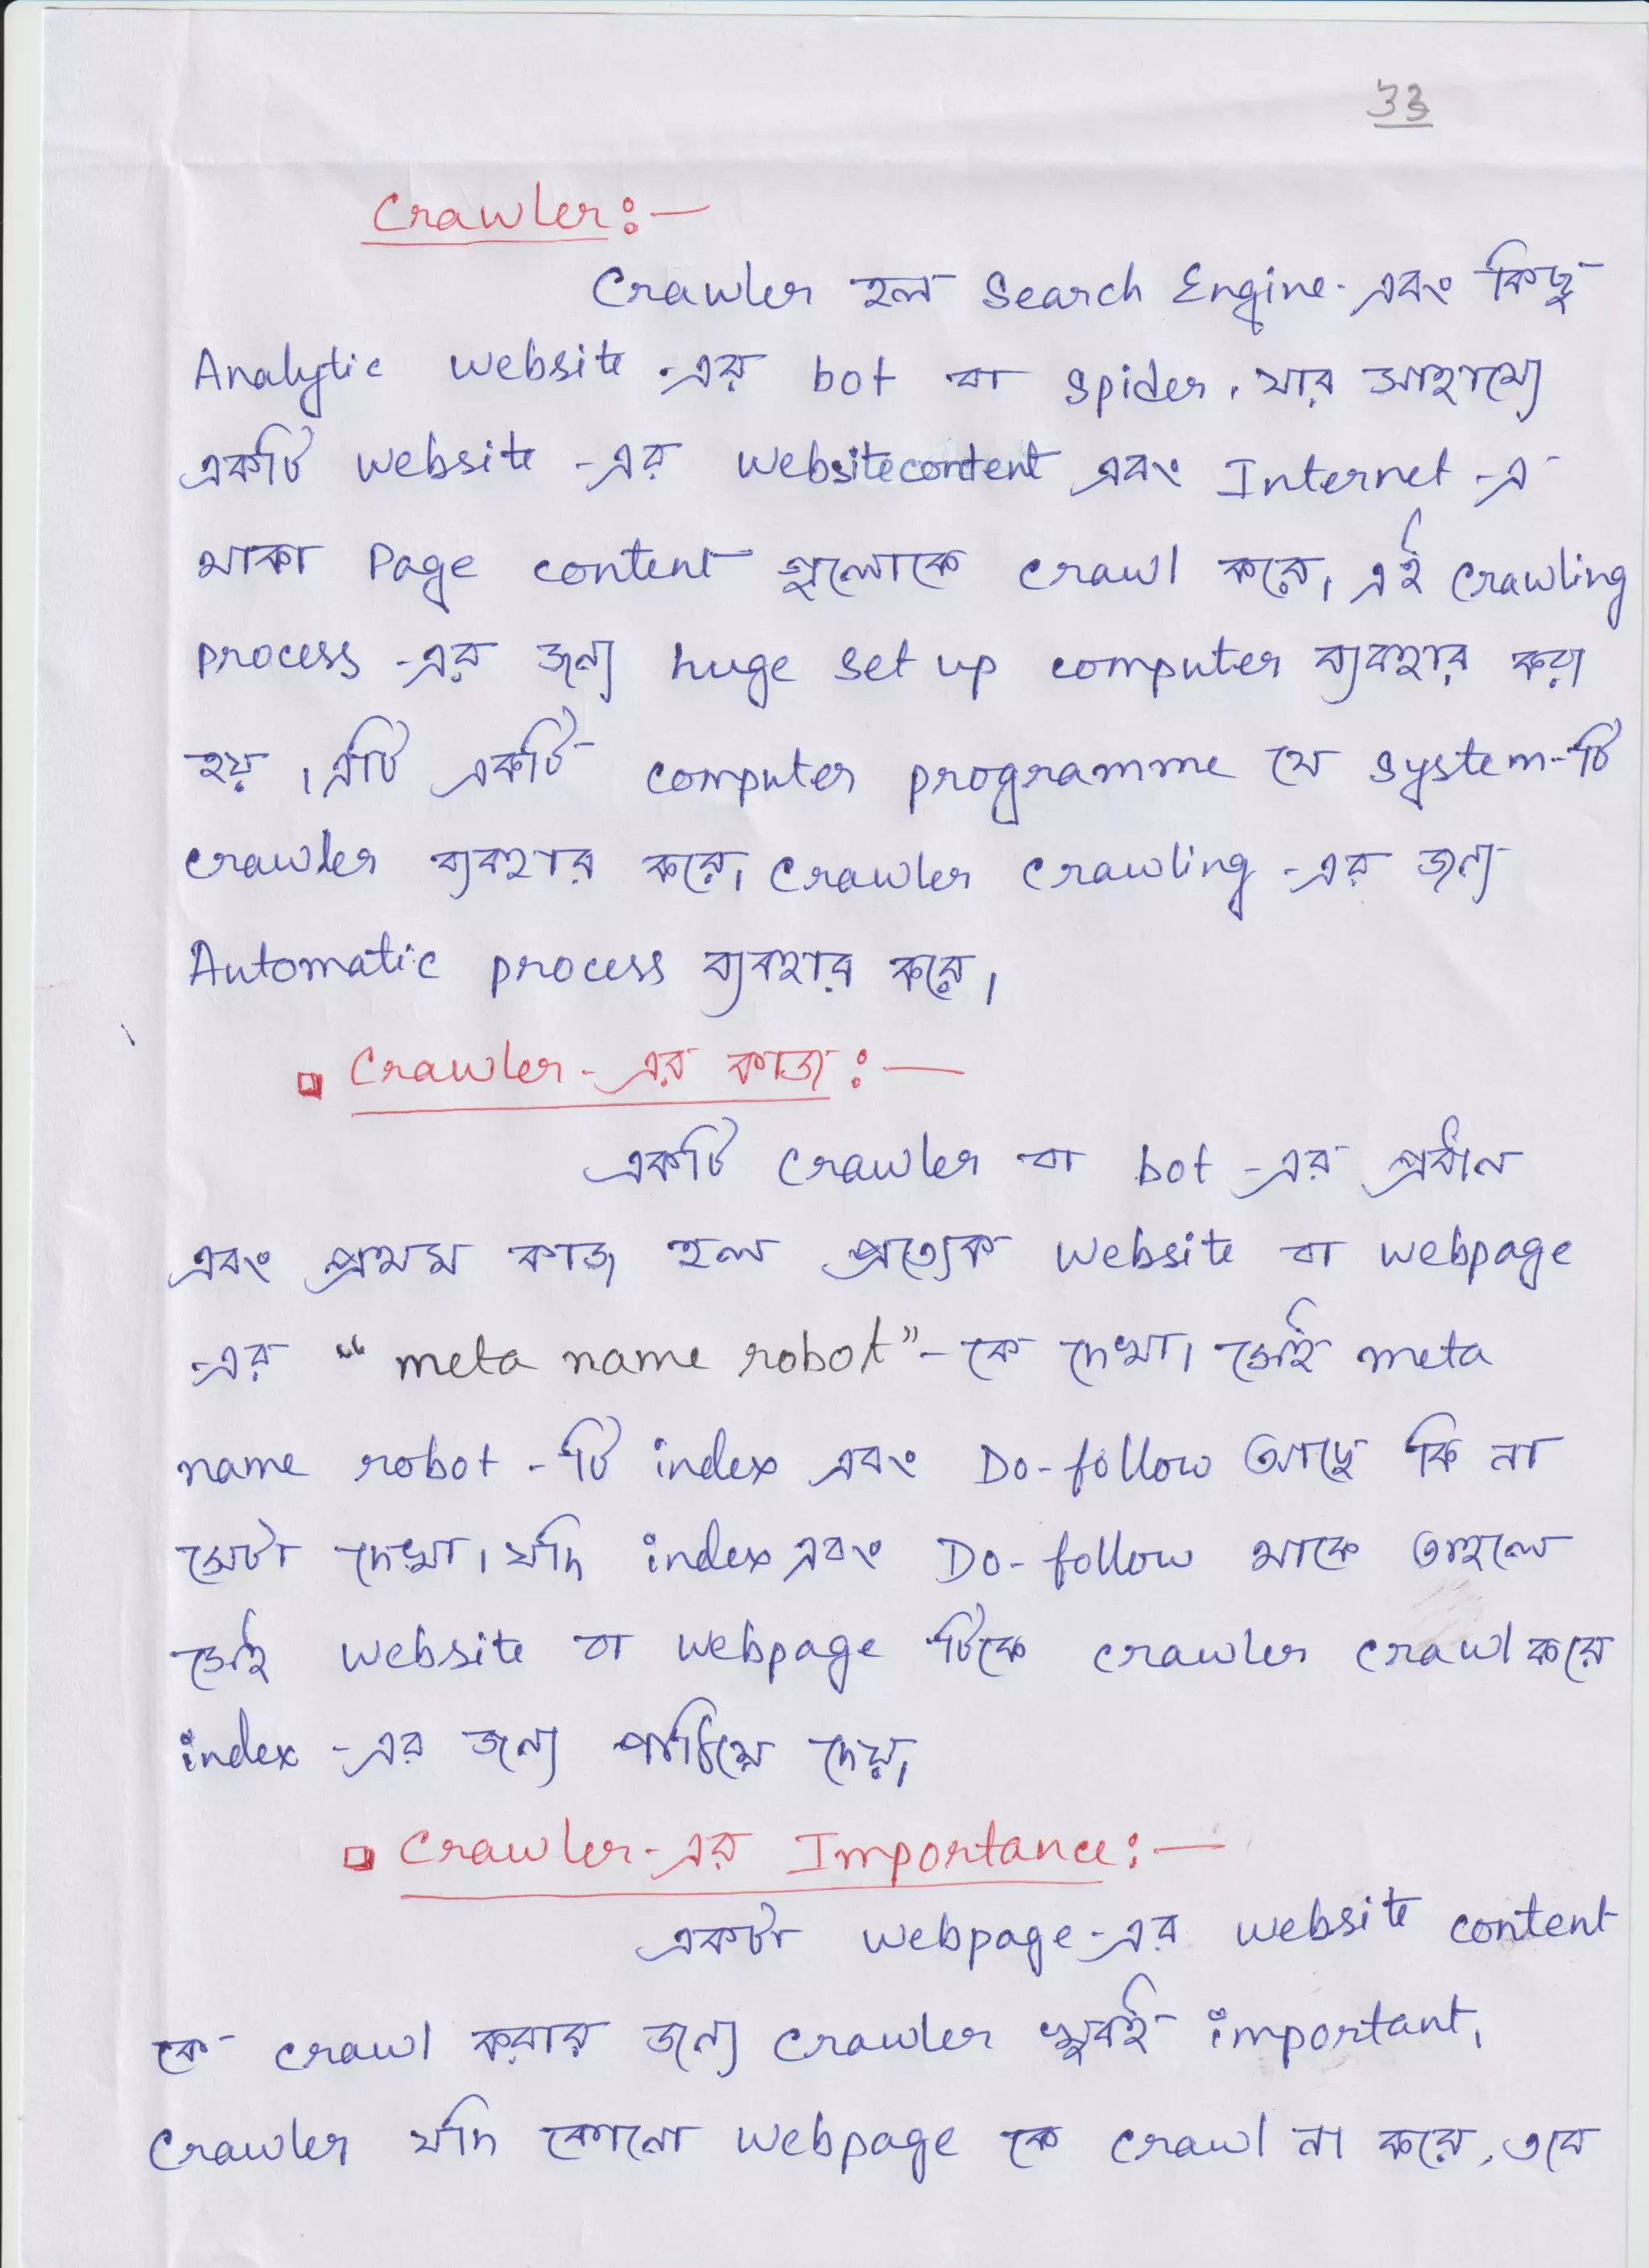 33
Crawler:—
Crawler হল Search Engine-এবং কিছু
Analytic website-এর bot বা spider, যার সাহায্যে
একটি website-এর websitecontent এবং Internet-এ
থাকা Page content গুলোকে crawl করে। এই crawling
process-এর জন্য huge set up computer ব্যবহার করা
হয়। এটি একটি computer programme যে system-টি
crawler ব্যবহার করে। crawler crawling-এর জন্য
Automatic process ব্যবহার করে।
Crawler-এর কাজ:—
একটি crawler বা bot-এর প্রধান
এবং প্রথম কাজ হল প্রত্যেক website বা webpage
-এর “meta name robot”-কে দেখা। সেই meta
name robot-টি index এবং Do-follow আছে কি না
সেটা দেখা। যদি index এবং Do-follow থাকে তাহলে
সেই website বা webpage টিকে crawler crawl করে
index-এর জন্য পাঠিয়ে দেয়।
Crawler-এর Importance:—
একটা webpage-এর website content
কে crawl করার জন্য crawler খুবই important।
Crawler যদি কোনো webpage কে crawl না করে, তবে